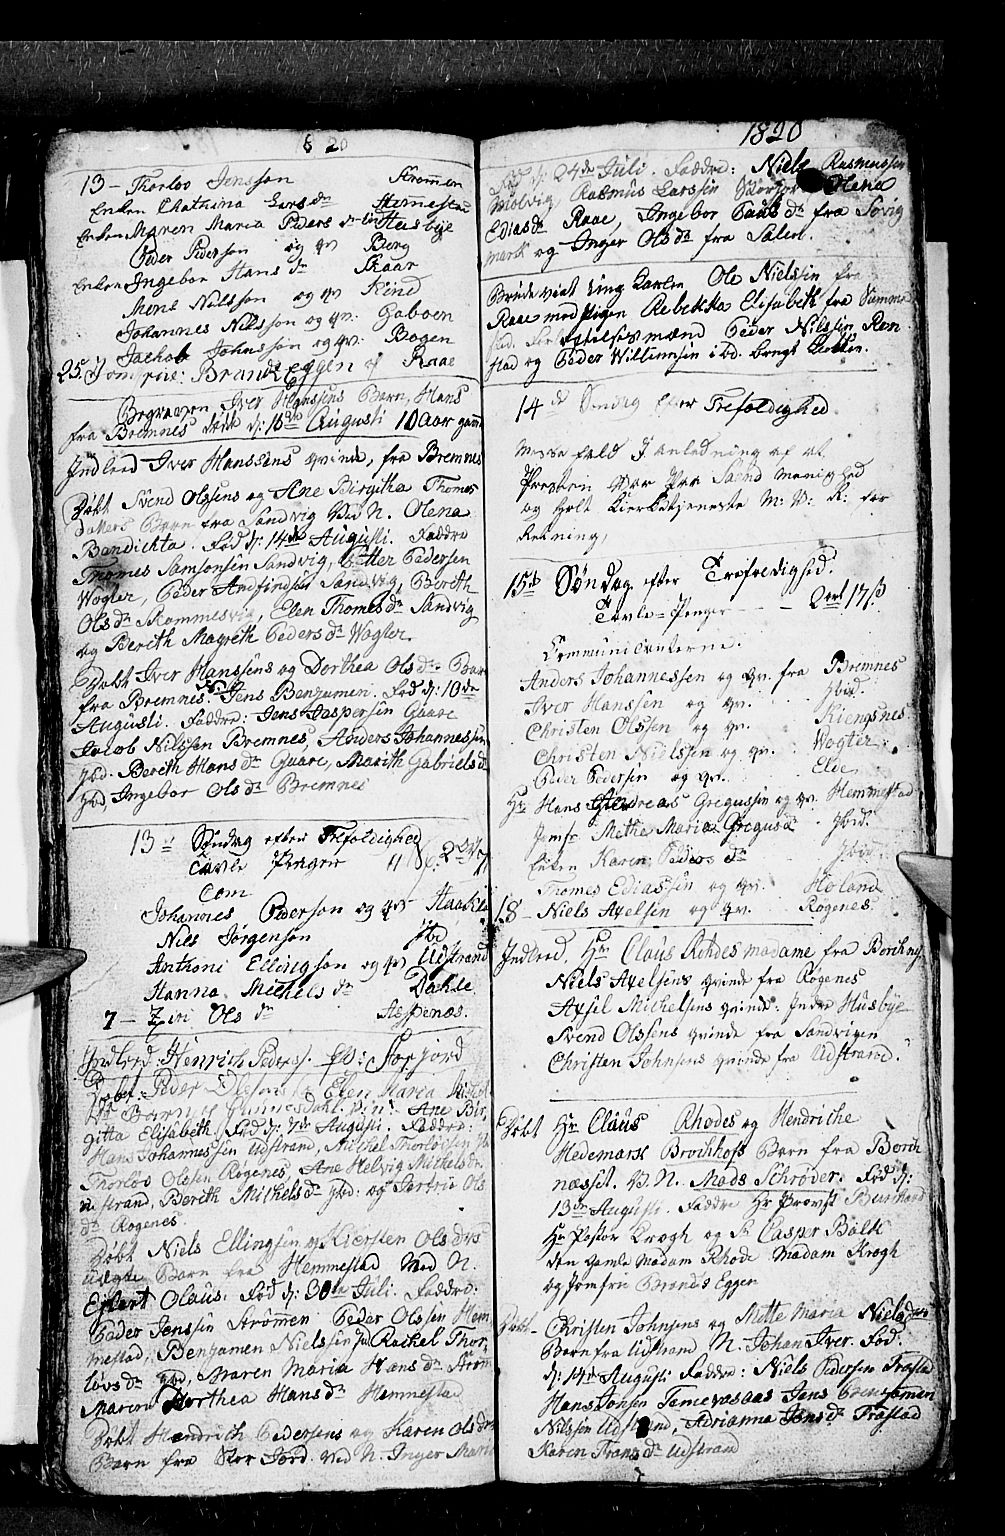 1820
13 – Thorlov Jensson Strømmen
Enken Chathrina Lars dr Hemestad
Enken Maren Maria Peders dr Husbye
Peder Pedersen og qv Borg
Enken Ingebor Hans dr Skaar
Mons Nielsson og qv Kind
Johannes Nilsson og qv: Gaboen
Jachob Johnsson og qv: Bogen
25. Jomfrue: Brandt Eggen af Raae
Begraven Iver Hanssens Barn, Hans
fra Bremnes død d: 10de Augusti 10 Aar gaml
Indleed Iver Hanssens qvinde, fra Bremnes
Døbt Svend Olssens og Ane Birgitha Thomes
datters Barn fra Sandvig Ved N. Olena
Bendichta. Fød d: 14de Augusti. Faddre
Thomes Samsonsen Sandvig, Petter Pedersen
Wogter, Peder Andfindsen Sandvig, Berith
Ols dr Skommesvig, Elen Thomes dr Sandvig
og Berith Magreth Peders dr Wogter.
Døbt Iver Hanssens og Dorthea Ols drs Barn
fra Bremnes. Jens Benjamen. Fød d: 10de
Augusti. Faddre: Jens Jaspersen Gaare
Jacob Nilssen Bremnes, Anders Johannessen
Ibid. Berith Hans dr Guare, Marith Gabriels dr
Ibid, Ingebor Ols dr Bremnes
13de Søndag efter Trefoldighed
Tavle Penger
Com
Johannes Pedersen og qv Haakels
Niels Jørgensen Ibid
Anthoni Ellingson og qv Udstrand
Hanna Michels dr Dahle
7 – Zivi Ols dr Aspenæs.
Indleed: Henrich Peders: qv: Storjord
Døbt: Peder Olesons og Elen Maria
Barn af Gunnesdahl. Ane Bir-
gitta Elisabeth, Fød d: 7de Augusti. Faddre:
Hans Johannessen Udstrand, Michel Thorlovsen
Thorlov Olssen Rogenes, Ane Helvig Michels dr
Udstrand, Berith Michels dr Ibid: og Ols
dr Rogenes.
Døbt Niels Ellingsen og Kiersten Ols drs
udegte Barn fra Hemmestad Ved N.
Ejlert Olaus. Fød d: 30te Juli. Faddre:
Peder Jenssen Strømmen Peder Olssen Hem-
mestad, Benjamen Nielssen Ibid Rachel Thor-
løvs dr Ibid, Maren Maria Hans dr Strøm
Maren Dorthea Hans dr Hemmestad
Døbt Hendrich Pedersens og Karen Ols drs
Barn fra Stor Jord. Ved N. Inger Maria
1820
Fød d: 24de Juli. Faddre: Niels Rasmussen
Molvig, Rasmus Larssen Storjord, Olena
Edias dr Raae, Ingebor Pauls dr fra Sørvig
mark og Inger Ols dr fra Salen.
Brudeviet Ung Karlen Ole Nielssen fra
Raae med Pigen Rebekka Elisabeth fra Simme
stad. Forlovelsesmænd Peder Nilssen Ren
stad og Peder Willumsen
14de Søndag Efter Trefoldighed
Messe fald I anledning af at
Præsten Var Paa Sand menighed
og Holt Kierketjeneste
Retning,
15de Søndag efter Trefoldighed.
Tavle-Penger – – 2 ort 17 ß
Communicanterne.
Anders Johannessen og qv. fra Bremnes
Iver Hanssen og qv. Ibid.
Christen Olssen og qv. Kiengsnes
Christen Nielssen og qv. Wogter
Peder Pedersen og qv. Elde
Hr Hans Andreas Gregussen og qv. Hemmestad
Jomfr Methe Maria Greguss Ibid.
Enken Karen Peders dr Ibid.
Thomes Ediassen og qv. Høland
18 – Niels Axelsen og qv. Rogenes
Indleed. Hr Claus Rohdes madame fra Borknes
Niels Axelsens qvinde fra Rogenes
Axsel Michelsens qvinde. Indre Husbye
Svend Olssens qvinde fra Sandvigen
Christen Johnsens qvinde fra Udstrand.
Døbt Hr Claus Rhodes og Hendriche
Hedemarx Brochhofs Barn fra Borch
næsset. V. N. Mads Schrøder. Fød d:
13de Augusti. Faddre Hr Provst
Hr Pastor Krogh og Sr Casper Balk
den Gamle Madam Rhode Madam Krogh
og Jomfru Brands Eggen
Døbt – Christen Johnsens og Mette Maria Niels drs
Barn fra Udstrand N. Johan Iver. Fød.
d: 14de Augusti Faddre: Niels Pedersen Trastad
Hans Jonsen Jens Benjamen
Nilssen Udstrand, Adrianna Jens dr Trastad
Karen Frans dr Udstrand